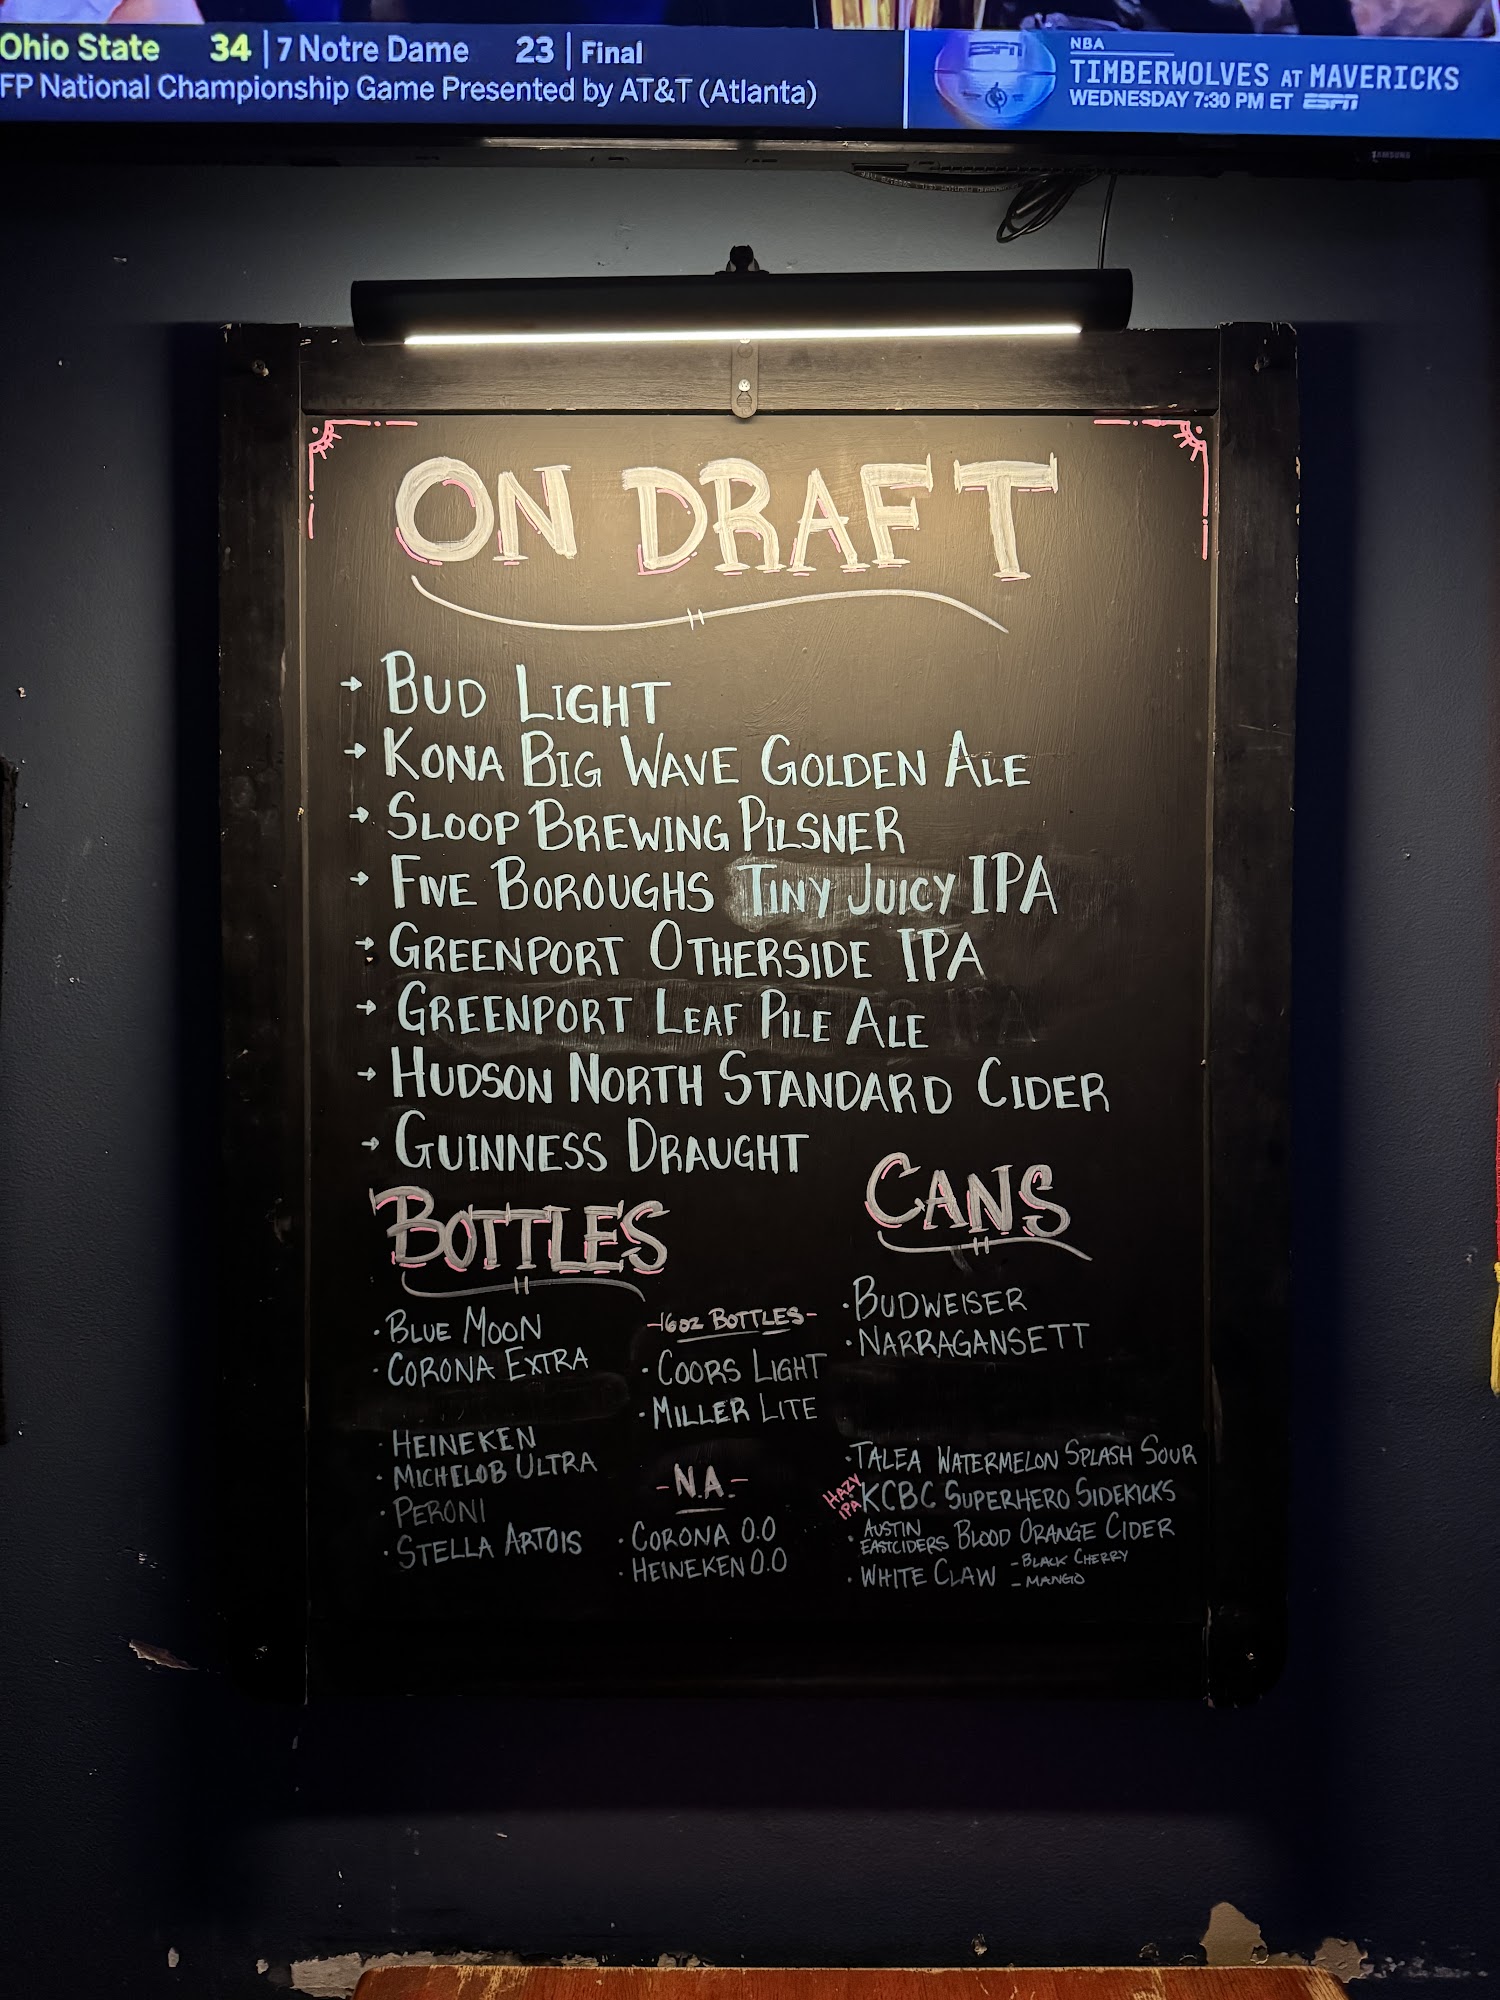 Ohio State 34 | 7 Notre Dame 23 | Final
FP National Championship Game Presented by AT&T (Atlanta)
ESPN
NBA
TIMBERWOLVES AT MAVERICKS
WEDNESDAY 7:30 PM ET ESPN
SAMSUNG
ON DRAFT
→ BUD LIGHT
→ KONA BIG WAVE GOLDEN ALE
→ SLOOP BREWING PILSNER
→ FIVE BOROUGHS TINY JUICY IPA
→ GREENPORT OTHERSIDE IPA
→ GREENPORT LEAF PILE ALE
→ HUDSON NORTH STANDARD CIDER
→ GUINNESS DRAUGHT
BOTTLES
· BLUE MOON
· CORONA EXTRA
· HEINEKEN
· MICHELOB ULTRA
· PERONI
· STELLA ARTOIS
-16oz BOTTLES-
· COORS LIGHT
· MILLER LITE
- N.A. -
· CORONA 0.0
· HEINEKEN 0.0
CANS
· BUDWEISER
· NARRAGANSETT
· TALEA WATERMELON SPLASH SOUR
HAZY
IPA
· KCBC SUPERHERO SIDEKICKS
· AUSTIN
EASTCIDERS BLOOD ORANGE CIDER
· WHITE CLAW - BLACK CHERRY
- MANGO